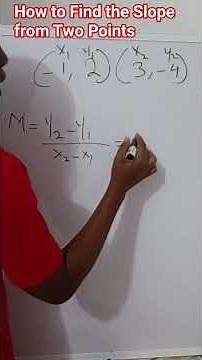 How to Find the Slope
from Two Points
x₁ y₁ x₂ y₂
(-1, 2) (3, -4)
M = y₂ - y₁ =
x₂ - x₁